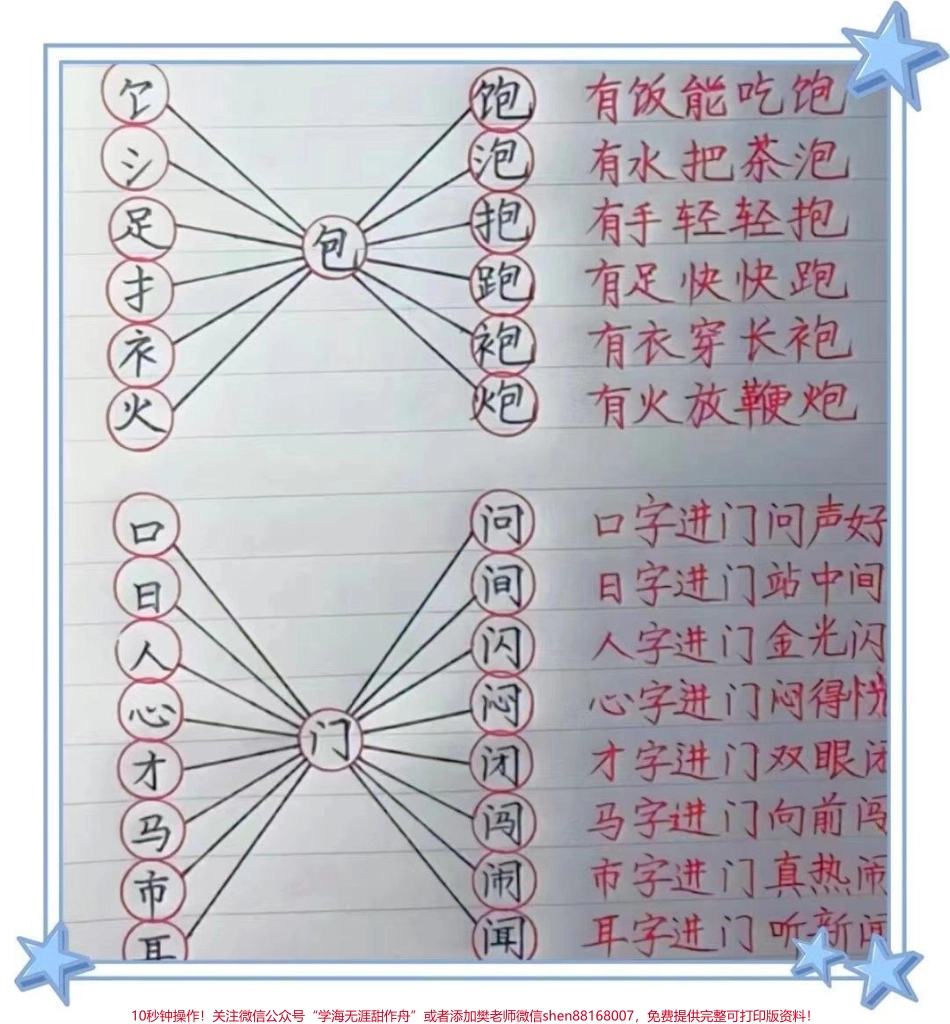 饣 饱 有饭能吃饱
氵 泡 有水把茶泡
足 抱 有手轻轻抱
包
扌 跑 有足快快跑
衤 袍 有衣穿长袍
火 炮 有火放鞭炮
口 问 口字进门问声好
日 间 日字进门站中间
人 闪 人字进门金光闪
心 闷 心字进门闷得慌
门
才 闭 才字进门双眼闭
马 闯 马字进门向前闯
市 闹 市字进门真热闹
耳 闻 耳字进门听新闻
10秒钟操作！关注微信公众号“学海无涯甜作舟”或者添加樊老师微信shen88168007，免费提供完整可打印版资料！